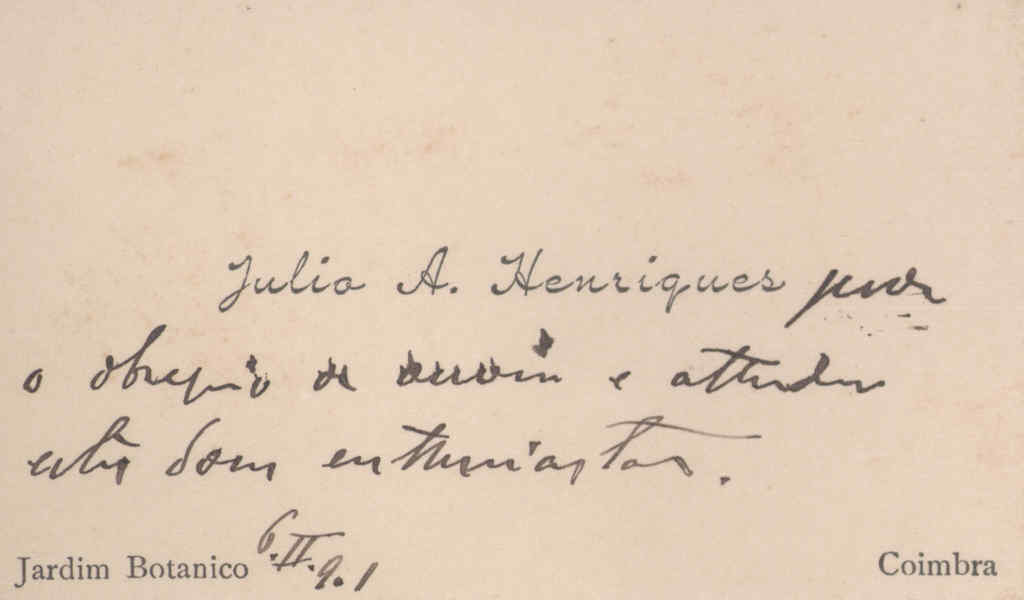 Julio A. Henriques pede
o obsequio de ouvir e attender
estes dous enthusiastas.
Jardim Botanico 6.II.9.1 Coimbra